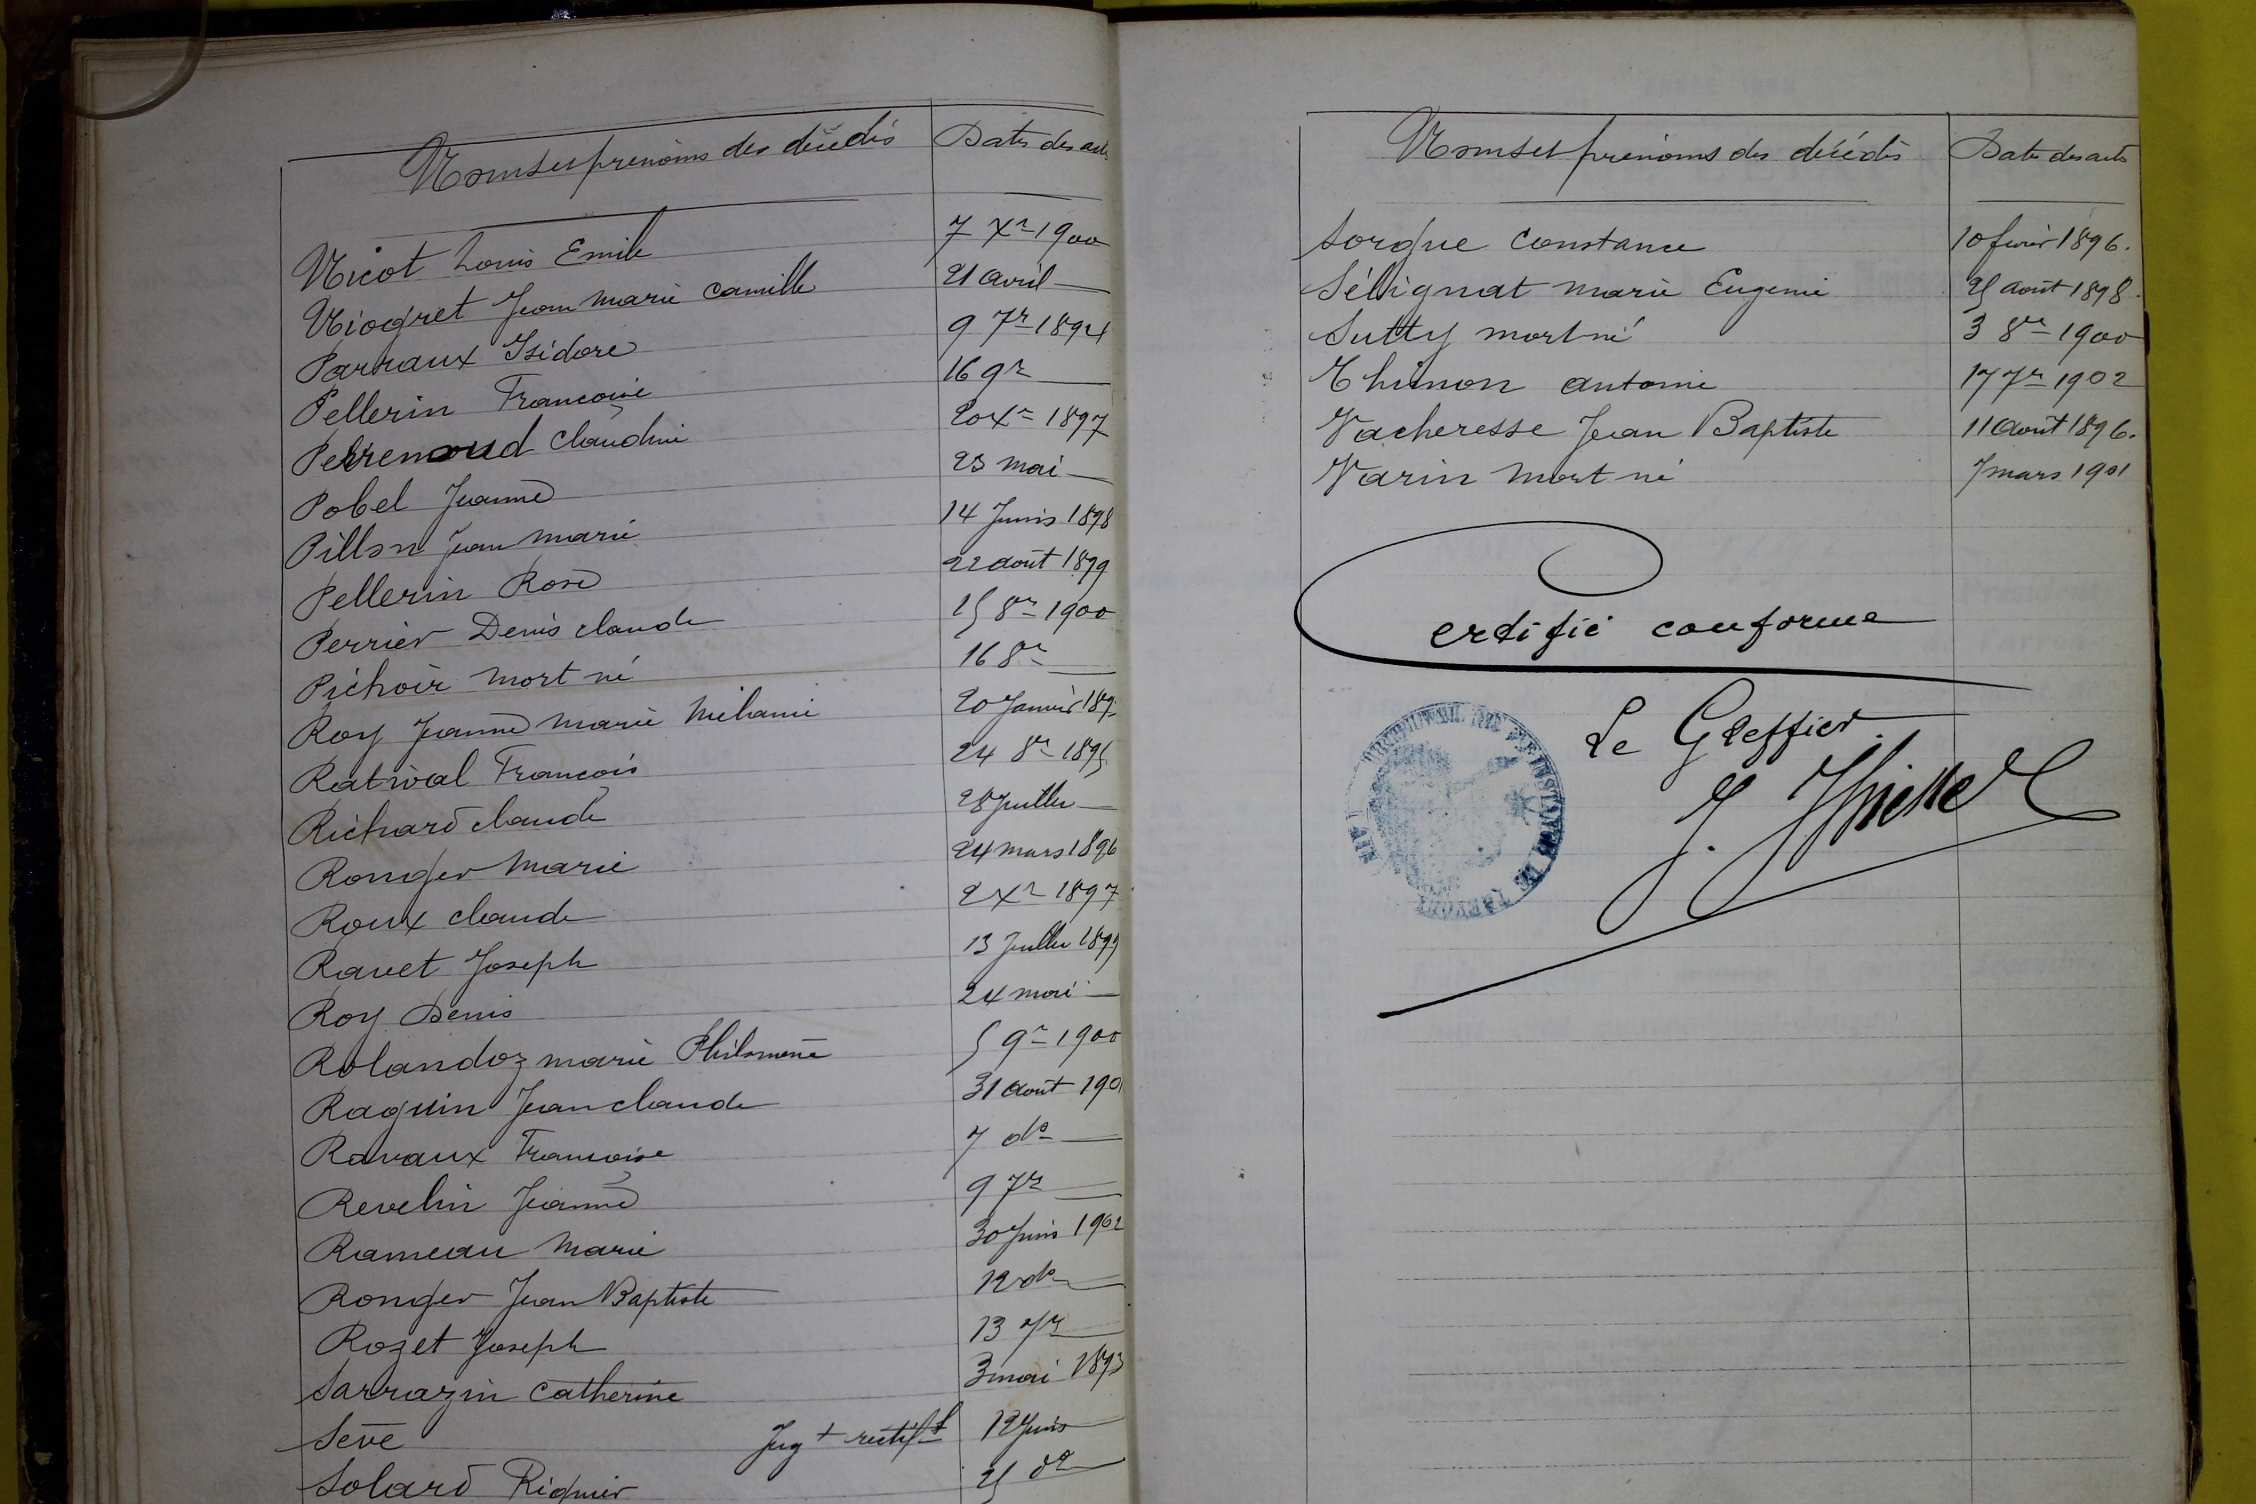 Noms et prénoms des décédés Dates des actes
Nicot Louis Emile 7 Xre 1900
Niogret Jean Marie Camille 21 avril —
Parraux Isidore 9 7re 1894
Pellerin Françoise 16 9re —
Perrenoud Claudine 20 Xre 1897
Pobel Jeanne 23 mai —
Pillon Jean Marie 14 Juin 1898
Pellerin Rose 22 août 1899
Perrier Denis Claude 15 8re 1900
Pichoir Mort né 16 8re —
Roy Jeanne Marie Mélanie 20 Janvier
Rativol François 24 8re 1895
Richard Claude 28 Juillet —
Ronger Marie 24 mars 1896
Roux Claude 2 Xre 1897
Ravet Joseph 13 Juillet 1899
Roy Denis 24 mai —
Rolandoz Marie Philomène 5 9re 1900
Raquin Jean Claude 31 août 1901
Ravaux Françoise 7 do —
Revelin Jeanne 9 7re —
Rameau Marie 30 Juin 1902
Ronger Jean Baptiste 12 do —
Rozet Joseph 13 7re —
Sarrazin Catherine 3 mai 1893
Seve Jugt rectift 12 Juin
Solard Riquier 25 do
Noms et prénoms des décédés Dates des actes
Sorgue Constance 10 février 1896.
Sélignat Marie Eugenie 25 août 1898.
Sutty mort né 3 8re 1900
Thimon Antoine 17 7re 1902
Vacheresse Jean Baptiste 11 août 1896.
Varin Mort né 7 mars 1901
Certifié conforme
Le Greffier
TRIBUNAL DE 1RE INSTANCE DE